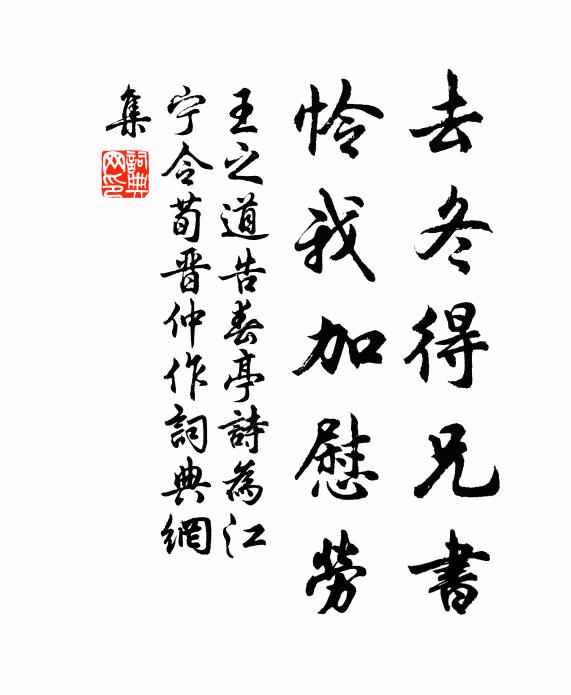 去冬得兄書
憐我加慰勞
王之道告春亭詩為江
宁令荀晋仲作詞典網
集
詞典
网印